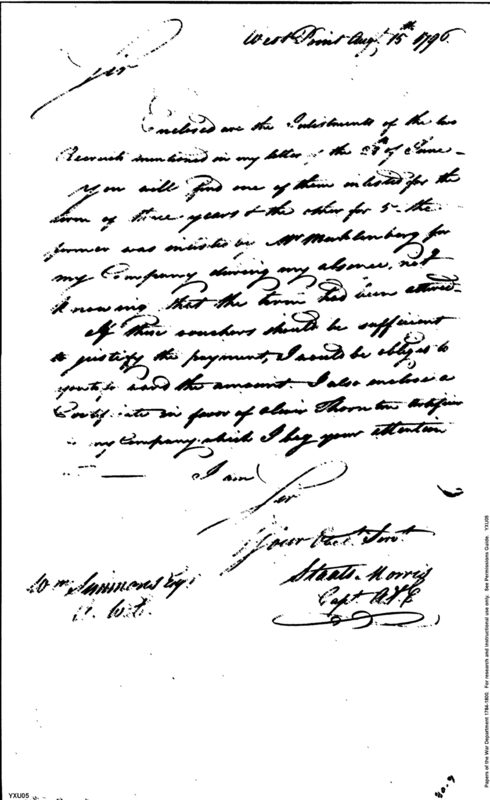 West Point Augt 15th 1796.
Sir
Enclosed are the Inlistments of the two
Recruits mentioned in my letter of the of June -
You will find one of them inlisted for the
term of three years & the other for 5 - the
former was inlisted by Mr Muhlenberg for
my Company during my absence, not
knowing that the term had been altered -
If these vouchers should be sufficient
to justify the payment, I would be obliged to
you to send the amount. I also enclose a
Certificate in favor of Thornton Artificer
in my Company which I beg your attention
to
I am
Sir
Your Obet. Servt.
Staats Morris
Capt. A & E
Wm Simmons Esqr
80.9
YXU05
Papers of the War Department 1784-1800. For research and instructional use only. See Permissions Guide. YXU05